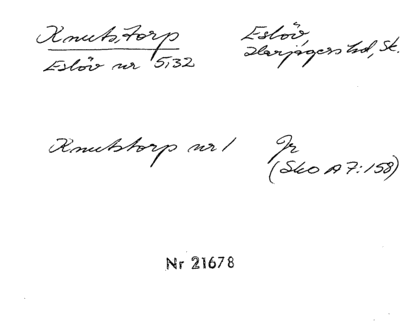 Knutstorp Eslöv,
Eslöv nr 5,32 Harjagers hd, Sk.
Knutstorp nr 1 Jr
(SkO A 7:158)
Nr 21678